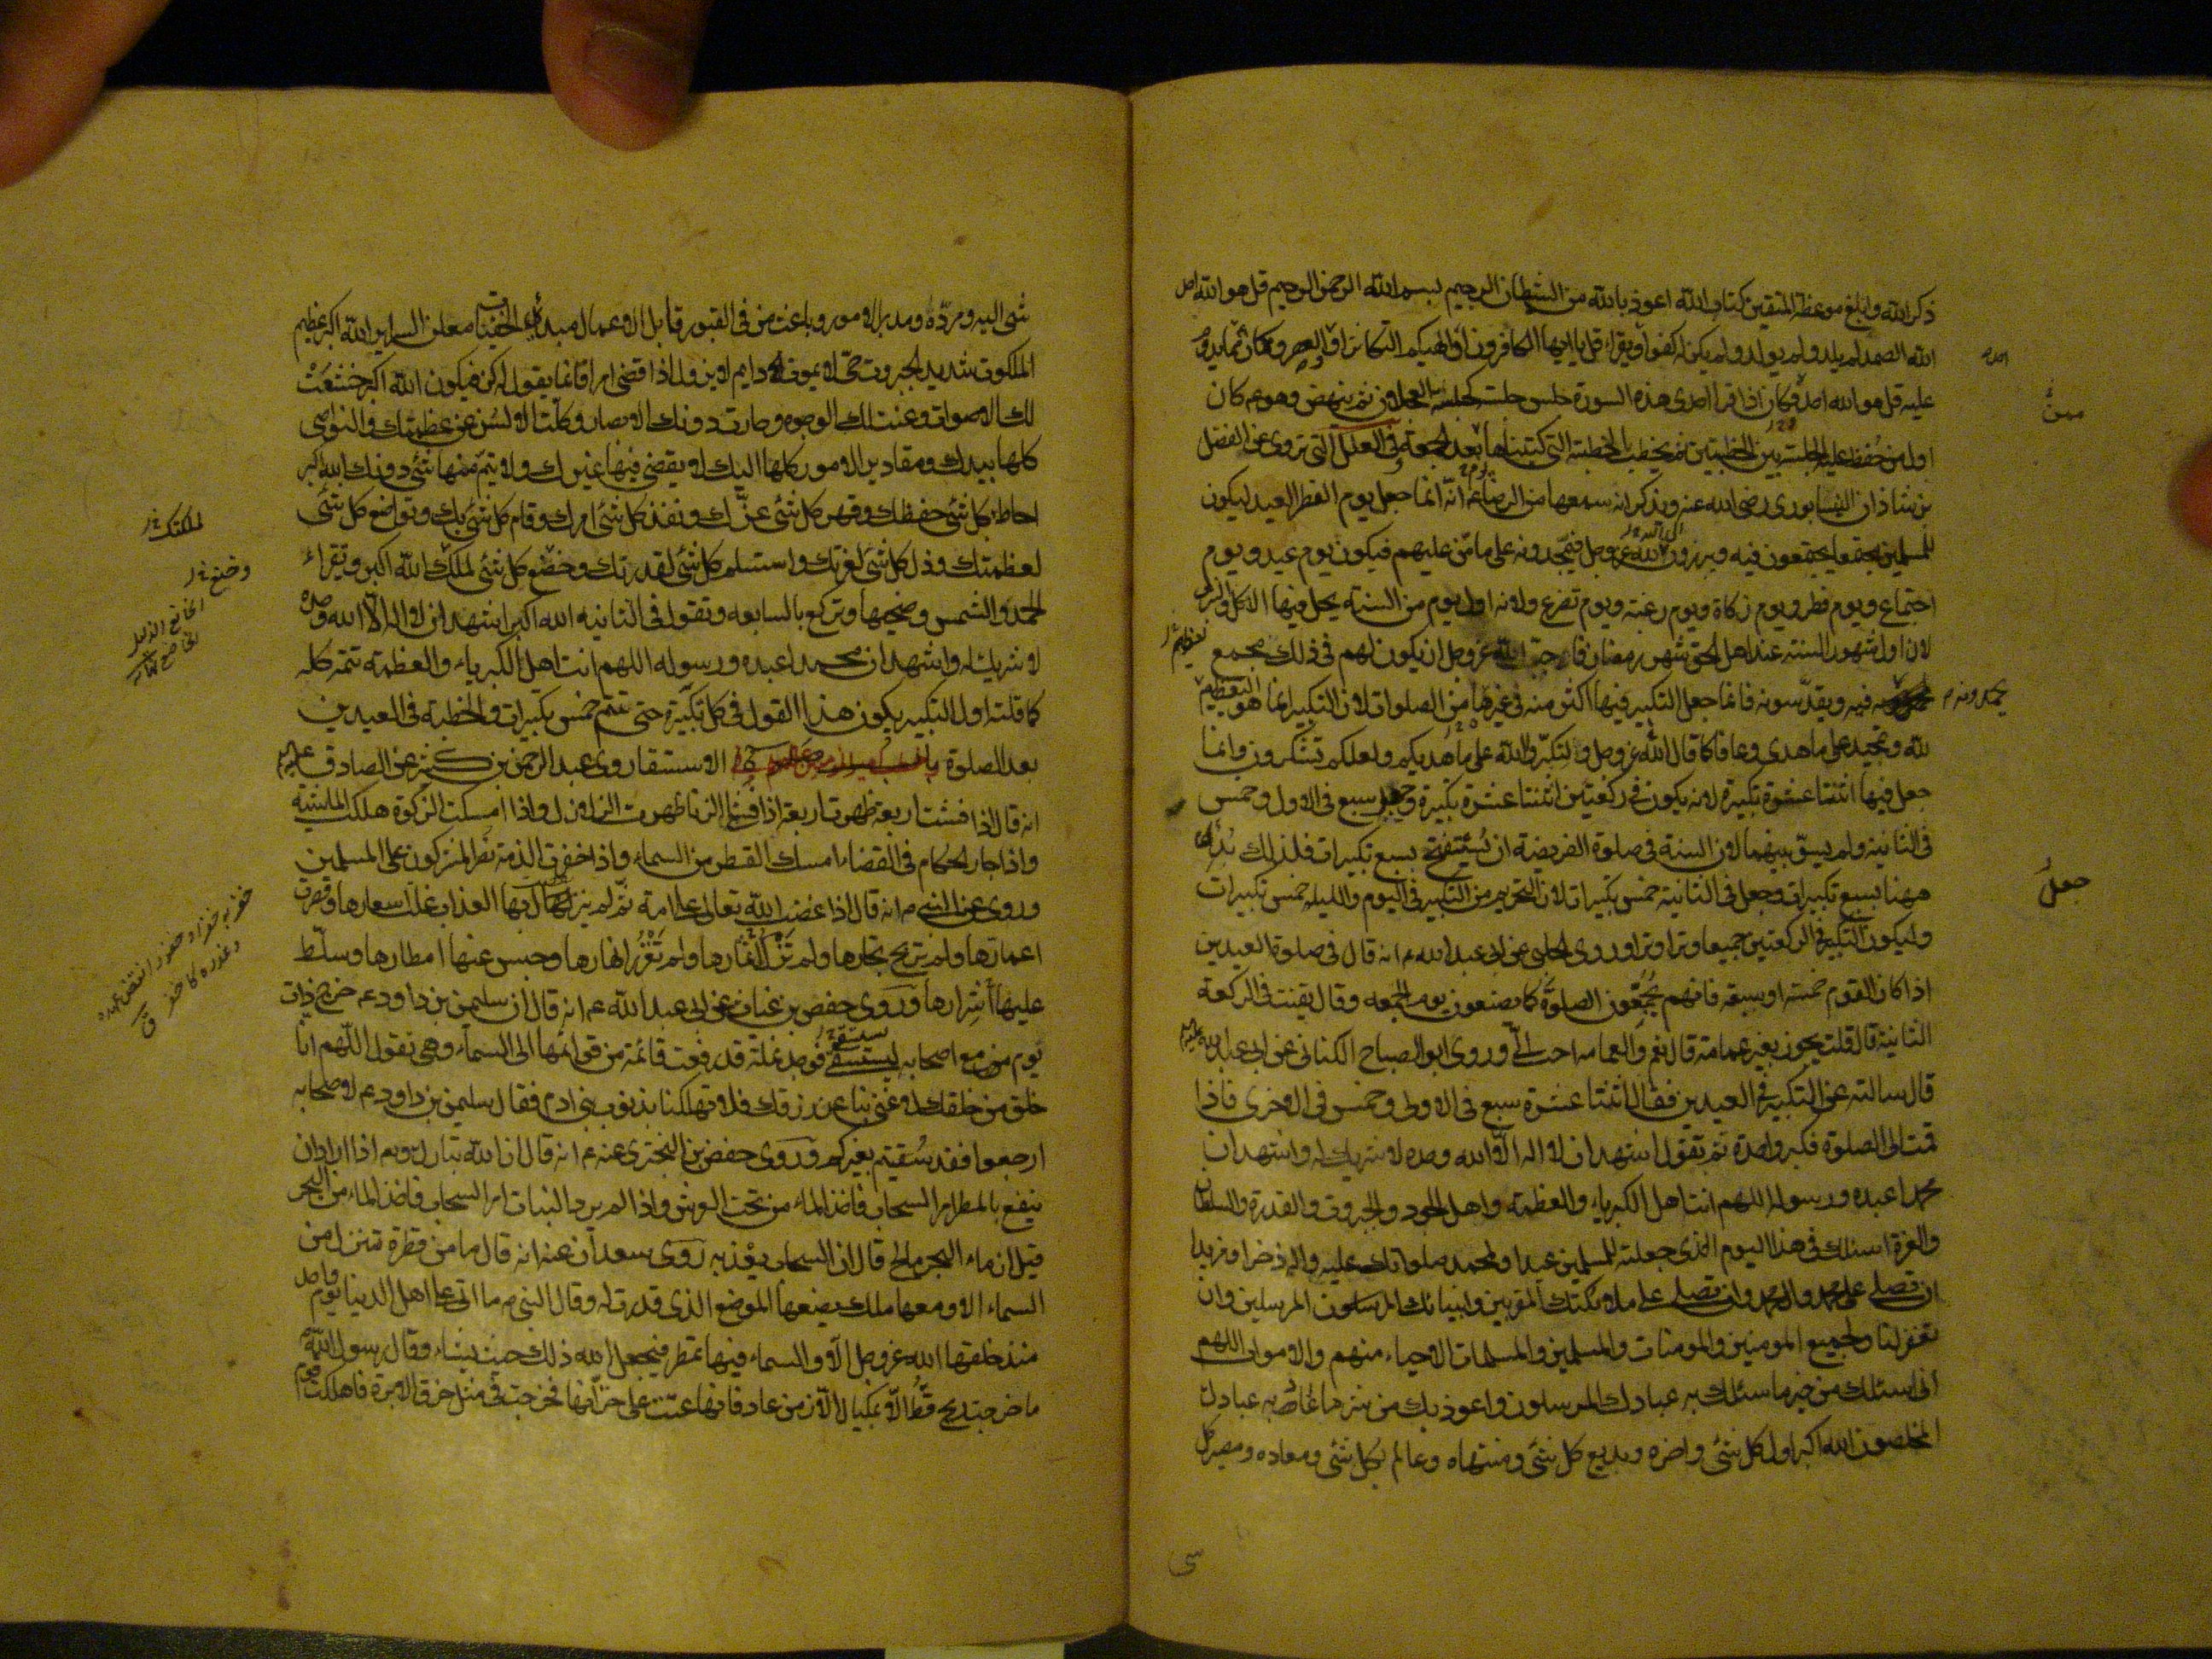 ذكر الله وابلغ موعظة المتقين كتاب الله اعوذ بالله من الشيطان الرجيم بسم الله الرحمن الرحيم قل هو الله احد
الله الصمد لم يلد ولم يولد ولم يكن له كفوا ويقراء قل يا ايها الكافرون او الهيكم التكاثر او العصر وكان مما يدوم
عليه قل هو الله احد وكان اذا قرا احدى هذه السورة جلس جلسة كجلسة العجلان ثم ينهض وهو عم كان
اول من حفظ عليه الجلسة بين الخطبتين ثم يخطب بالخطبة التي كتبناها بعد الجمعة وفي العلل التي تروى عن الفضل
بن شاذان النيسابوري رضي الله عنه ويذكر انه سمعها من الرضا عم انه انما جعل يوم الفطر العيد ليكون
للمسلمين مجتمعا يجتمعون فيه ويبرزون لله عز وجل فيمجدونه على ما من عليهم فيكون يوم عيد ويوم
اجتماع ويوم فطر ويوم زكاة ويوم رغبة ويوم تضرع ولانه اول يوم من السنة يحل فيها الاكل والشرب
لان اول شهور السنة عند اهل الحق شهر رمضان فاحب الله عز وجل ان يكون لهم في ذلك مجمع
يحمدونه فيه ويقدسونه فانما جعل التكبير فيها اكثر منه في غيرها من الصلوات لان التكبير انما هو التعظيم
لله وتمجيد على ما هدى وعافا كما قال الله عز وجل ولتكبروا الله على ما هديكم ولعلكم تشكرون وانما
جعل فيها اثنتا عشرة تكبيرة لانه يكون في ركعتين اثنتا عشرة تكبيرة وجعل سبع في الاولى وخمس
في الثانية ولم يسو بينهما لان السنة في صلوة الفريضة ان يستفتح بسبع تكبيرات فلذلك بدئ
ههنا بسبع تكبيرات وجعل في الثانية خمس تكبيرات لان التحريم من التكبير في اليوم والليله خمس تكبيرات
وليكون التكبير في الركعتين جميعا وترا وترا وروى الحلبي عن ابي عبد الله عم انه قال في صلوة العيدين
اذا كان القوم خمسة او سبعة فانهم يجمعون الصلوة كما يصنعون يوم الجمعه وقال يقنت في الركعة
الثانية قال قلت يجوز بغير عمامة قال نعم والعمامه احب الي وروى ابو الصباح الكناني عن ابي عبد الله
قال سالته عن التكبير في العيدين فقال اثنتا عشرة سبع في الاولى وخمس في الاخرى فاذا
قمت الى الصلوة فكبر واحدة ثم تقول اشهد ان لا اله الا الله وحده لا شريك له واشهد ان
محمدا عبده ورسوله اللهم انت اهل الكبرياء والعظمة واهل الجود والجبروت والقدرة والسلطان
والعزة اسئلك في هذا اليوم الذي جعلته للمسلمين عيدا ولمحمد صلواتك عليه واله ذخرا ومزيدا
ان تصلي على محمد وال محمد وان تصلي على ملائكتك المقربين وانبيائك المرسلين وان
تغفر لنا ولجميع المومنين والمومنات والمسلمين والمسلمات الاحياء منهم والاموات اللهم
اني اسئلك من خير ما سئلك به عبادك المرسلون واعوذ بك من شر ما عاذ به عبادك
المخلصون الله اكبر اول كل شئ واخره وبديع كل شئ ومنتهاه وعالم بكل شئ ومعاده ومصير كل
جعل
شئ اليه ومرده ومدبر الامور وباعث من في القبور قابل الاعمال مبدئ الخفيات معلن السراير الله اكبر عظيم
الملكوت شديد الجبروت حي لا يموت دايم لا يزول اذا قضى امرا فانما يقول له كن فيكون الله اكبر خشعت
لك الاصوات وعنت لك الوجوه وحارت دونك الابصار وكلت الالسن عن عظمتك والنواصي
كلها بيدك ومقادير الامور كلها اليك لا يقضي فيها غيرك ولا يتم منها شئ دونك الله اكبر
احاط بكل شئ حفظك وقهر كل شئ عزك ونفذ كل شئ امرك وقام كل شئ بك وتواضع كل شئ
لعظمتك وذل كل شئ لعزتك واستسلم كل شئ لقدرتك وخضع كل شئ لملكك الله اكبر وتقراء
الحمد والشمس وضحيها وتركع بالسابعه وتقول في الثانيه الله اكبر اشهد ان لا اله الا الله وحده
لا شريك له واشهد ان محمدا عبده ورسوله اللهم انت اهل الكبرياء والعظمة تتمه كله
كما قلته اول التكبير يكون هذا القول في كل تكبيرة حتى تتم خمس تكبيرات والخطبة في العيدين
بعد الصلوة الاستسقا روى عبد الرحمن بن كثير عن الصادق
انه قال اذا فشت اربعة ظهرت اربعة اذا فشا الزنا ظهرت الزلازل واذا امسكت الزكوة هلكت الماشية
واذا جار الحكام في القضاء امسك القطر من السماء واذا خفرت الذمة نصر المشركون على المسلمين
وروى عن النبي ص انه قال اذا غضب الله تعالى على امة ثم لم ينزل بها العذاب غلت اسعارها وقصرت
اعمارها ولم تربح تجارها ولم تزك اثمارها ولم تغزر انهارها وحبس عنها امطارها وسلط
عليها اشرارها وروى حفص بن غياث عن ابي عبد الله عم انه قال ان سليمن بن داود عم خرج ذات
يوم مع اصحابه ليستسقي فوجد نملة قد رفعت قائمة من قوائمها الى السماء وهي تقول اللهم انا
خلق من خلقك لا غنى بنا عن رزقك فلا تهلكنا بذنوب بني ادم فقال سليمن بن داود عم لاصحابه
ارجعوا فقد سقيتم بغيركم وروى حفص بن البختري عنه عم انه قال ان الله تبارك وتع اذا اراد ان
ينفع بالمطر امر السحاب فاخذ الماء من تحت العرش واذا لم يرد النبات امر السحاب فاخذ الماء من البحر
قيل ان ماء البحر مالح قال ان السحاب يعذبه روى سعدان عنه انه قال ما من قطرة تنزل من
السماء الا ومعها ملك يضعها الموضع الذي قدرت له وقال النبي ص ما اتى على اهل الدنيا يوم واحد
منذ خلقها الله عز وجل الا والسماء فيها تمطر فيجعل الله ذلك حيث يشاء وقال رسول الله
ما خرجت ريح قط الا بمكيال الا زمن عاد فانها عتت على خزانها فخرجت في مثل خرق الابرة فاهلكت قوم
لملكك